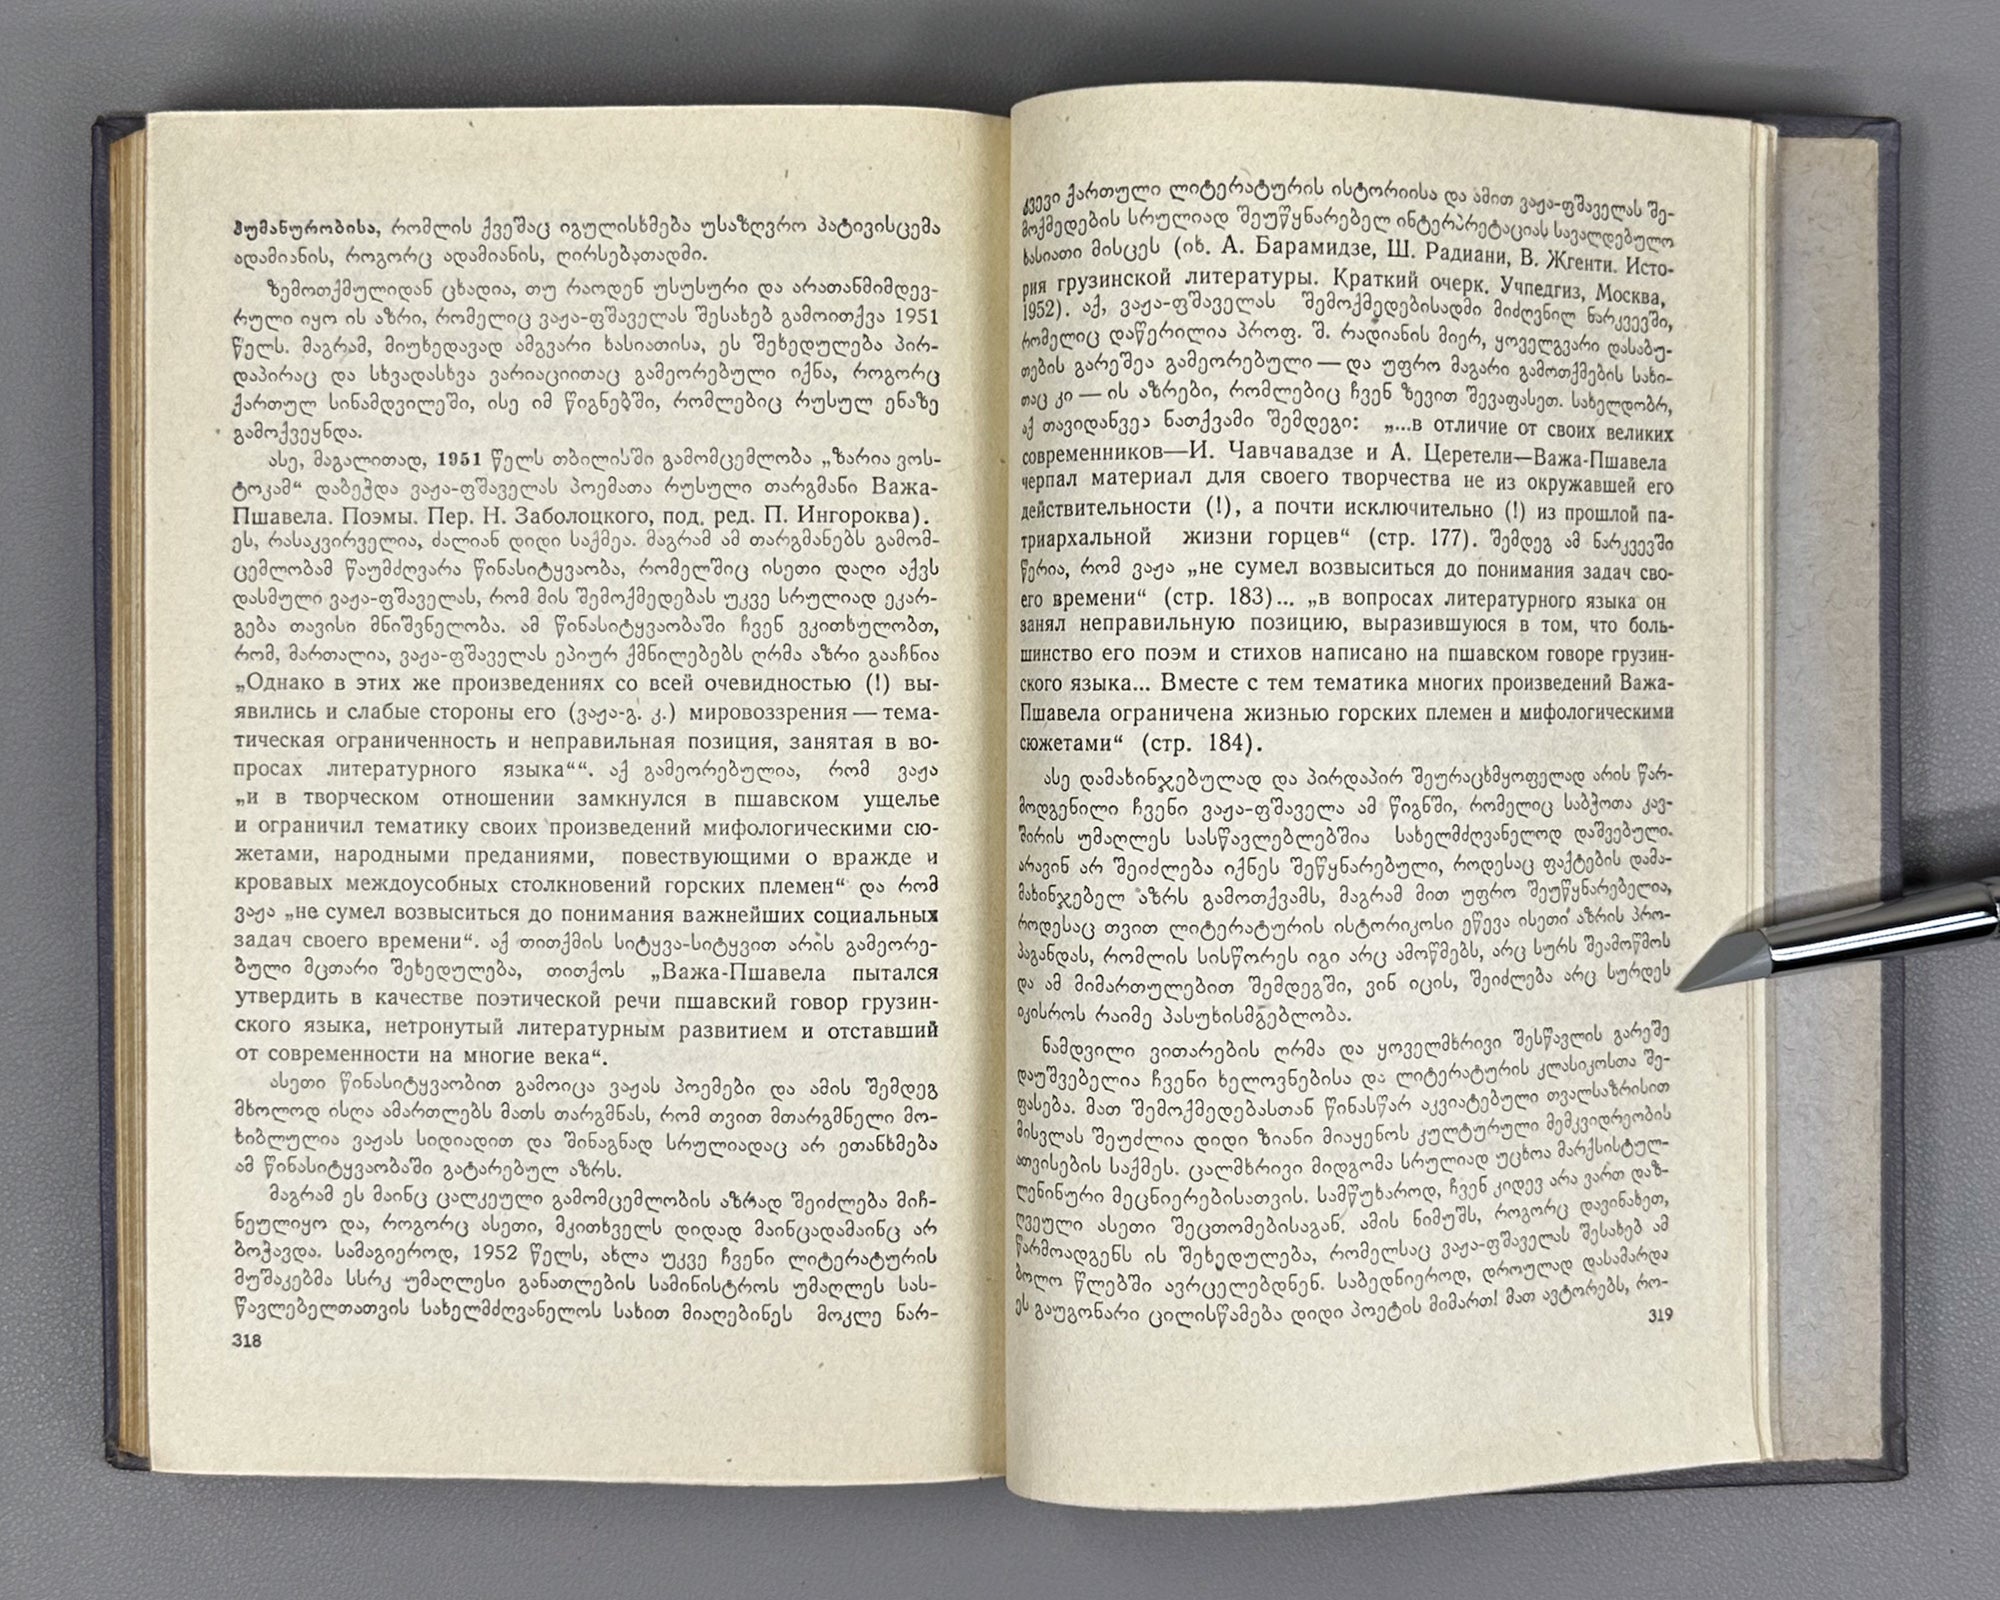 ჰუმანურობისა, რომლის ქვეშაც იგულისხმება უსაზღვრო პატივისცემა
ადამიანის, როგორც ადამიანის, ღირსებათადმი.
ზემოთქმულიდან ცხადია, თუ რაოდენ უსუსური და არათანმიმდევ-
რული იყო ის აზრი, რომელიც ვაჟა-ფშაველას შესახებ გამოითქვა 1951
წელს. მაგრამ, მიუხედავად ამგვარი ხასიათისა, ეს შეხედულება პირ-
დაპირაც და სხვადასხვა ვარიაციითაც გამეორებული იქნა, როგორც
ქართულ სინამდვილეში, ისე იმ წიგნებში, რომლებიც რუსულ ენაზე
გამოქვეყნდა.
ასე, მაგალითად, 1951 წელს თბილისში გამომცემლობა „ზარია ვოს-
ტოკამ“ დაბეჭდა ვაჟა-ფშაველას პოემათა რუსული თარგმანი Важа-
Пшавела. Поэмы. Пер. Н. Заболоцкого, под. ред. П. Ингороква).
ეს, რასაკვირველია, ძალიან დიდი საქმეა. მაგრამ ამ თარგმანებს გამომ-
ცემლობამ წაუმძღვარა წინასიტყვაობა, რომელშიც ისეთი დაღი აქვს
დასმული ვაჟა-ფშაველას, რომ მის შემოქმედებას უკვე სრულიად ეკარ-
გება თავისი მნიშვნელობა. ამ წინასიტყვაობაში ჩვენ ვკითხულობთ,
რომ, მართალია, ვაჟა-ფშაველას ეპიურ ქმნილებებს ღრმა აზრი გააჩნია
„Однако в этих же произведениях со всей очевидностью (!) вы-
явились и слабые стороны его (ვაჟა-გ. კ.) мировоззрения — тема-
тическая ограниченность и неправильная позиция, занятая в во-
просах литературного языка““. აქ გამეორებულია, რომ ვაჟა
„и в творческом отношении замкнулся в пшавском ущелье
и ограничил тематику своих произведений мифологическими сю-
жетами, народными преданиями, повествующими о вражде и
кровавых междоусобных столкновений горских племен“ და რომ
ვაჟა „не сумел возвыситься до понимания важнейших социальных
задач своего времени“. აქ თითქმის სიტყვა-სიტყვით არის გამეორე-
ბული მცთარი შეხედულება, თითქოს „Важа-Пшавела пытался
утвердить в качестве поэтической речи пшавский говор грузин-
ского языка, нетронутый литературным развитием и отставший
от современности на многие века“.
ასეთი წინასიტყვაობით გამოიცა ვაჟას პოემები და ამის შემდეგ
მხოლოდ ისღა ამართლებს მათს თარგმნას, რომ თვით მთარგმნელი მო-
ხიბლულია ვაჟას სიდიადით და შინაგნად სრულიადაც არ ეთანხმება
ამ წინასიტყვაობაში გატარებულ აზრს.
მაგრამ ეს მაინც ცალკეული გამომცემლობის აზრად შეიძლება მიჩ-
ნეულიყო და, როგორც ასეთი, მკითხველს დიდად მაინცადამაინც არ
ბოჭავდა. სამაგიეროდ, 1952 წელს, ახლა უკვე ჩვენი ლიტერატურის
მუშაკებმა სსრკ უმაღლესი განათლების სამინისტროს უმაღლეს სას-
წავლებელთათვის სახელმძღვანელოს სახით მიაღებინეს მოკლე ნარ-
318
კვევი ქართული ლიტერატურის ისტორიისა და ამით ვაჟა-ფშაველას შე-
მოქმედების სრულიად შეუწყნარებელ ინტერპრეტაციას სავალდებულო
ხასიათი მისცეს (იხ. А. Барамидзе, Ш. Радиани, В. Жгенти. Исто-
рия грузинской литературы. Краткий очерк. Учпедгиз, Москва,
1952). აქ, ვაჟა-ფშაველას შემოქმედებისადმი მიძღვნილ ნარკვევში,
რომელიც დაწერილია პროფ. შ. რადიანის მიერ, ყოველგვარი დასაბუ-
თების გარეშეა გამეორებული — და უფრო მაგარი გამოთქმების სახი-
თაც კი — ის აზრები, რომლებიც ჩვენ ზევით შევაფასეთ. სახელდობრ,
აქ თავიდანვეა ნათქვამი შემდეგი: „...в отличие от своих великих
современников—И. Чавчавадзе и А. Церетели—Важа-Пшавела
черпал материал для своего творчества не из окружавшей его
действительности (!), а почти исключительно (!) из прошлой па-
триархальной жизни горцев“ (стр. 177). შემდეგ ამ ნარკვევში
წერია, რომ ვაჟა „не сумел возвыситься до понимания задач сво-
его времени“ (стр. 183)... „в вопросах литературного языка он
занял неправильную позицию, выразившуюся в том, что боль-
шинство его поэм и стихов написано на пшавском говоре грузин-
ского языка... Вместе с тем тематика многих произведений Важа-
Пшавела ограничена жизнью горских племен и мифологическими
сюжетами“ (стр. 184).
ასე დამახინჯებულად და პირდაპირ შეურაცხმყოფელად არის წარ-
მოდგენილი ჩვენი ვაჟა-ფშაველა ამ წიგნში, რომელიც საბჭოთა კავ-
შირის უმაღლეს სასწავლებლებშია სახელმძღვანელოდ დაშვებული.
არავინ არ შეიძლება იქნეს შეწყნარებული, როდესაც ფაქტების დამა-
მახინჯებელ აზრს გამოთქვამს, მაგრამ მით უფრო შეუწყნარებელია,
როდესაც თვით ლიტერატურის ისტორიკოსი ეწევა ისეთი აზრის პრო-
პაგანდას, რომლის სისწორეს იგი არც ამოწმებს, არც სურს შეამოწმოს
და ამ მიმართულებით შემდეგში, ვინ იცის, შეიძლება არც სურდეს
იკისროს რაიმე პასუხისმგებლობა.
ნამდვილი ვითარების ღრმა და ყოველმხრივი შესწავლის გარეშე
დაუშვებელია ჩვენი ხელოვნებისა და ლიტერატურის კლასიკოსთა შე-
ფასება. მათ შემოქმედებასთან წინასწარ აკვიატებული თვალსაზრისით
მისვლას შეუძლია დიდი ზიანი მიაყენოს კულტურული მემკვიდრეობის
ათვისების საქმეს. ცალმხრივი მიდგომა სრულიად უცხოა მარქსისტულ-
ლენინური მეცნიერებისათვის. სამწუხაროდ, ჩვენ კიდევ არა ვართ დაზ-
ღვეული ასეთი შეცთომებისაგან. ამის ნიმუშს, როგორც დავინახეთ,
წარმოადგენს ის შეხედულება, რომელსაც ვაჟა-ფშაველას შესახებ ამ
ბოლო წლებში ავრცელებდნენ. საბედნიეროდ, დროულად დასამარდა
ეს გაუგონარი ცილისწამება დიდი პოეტის მიმართ! მათ ავტორებს, რო-
319